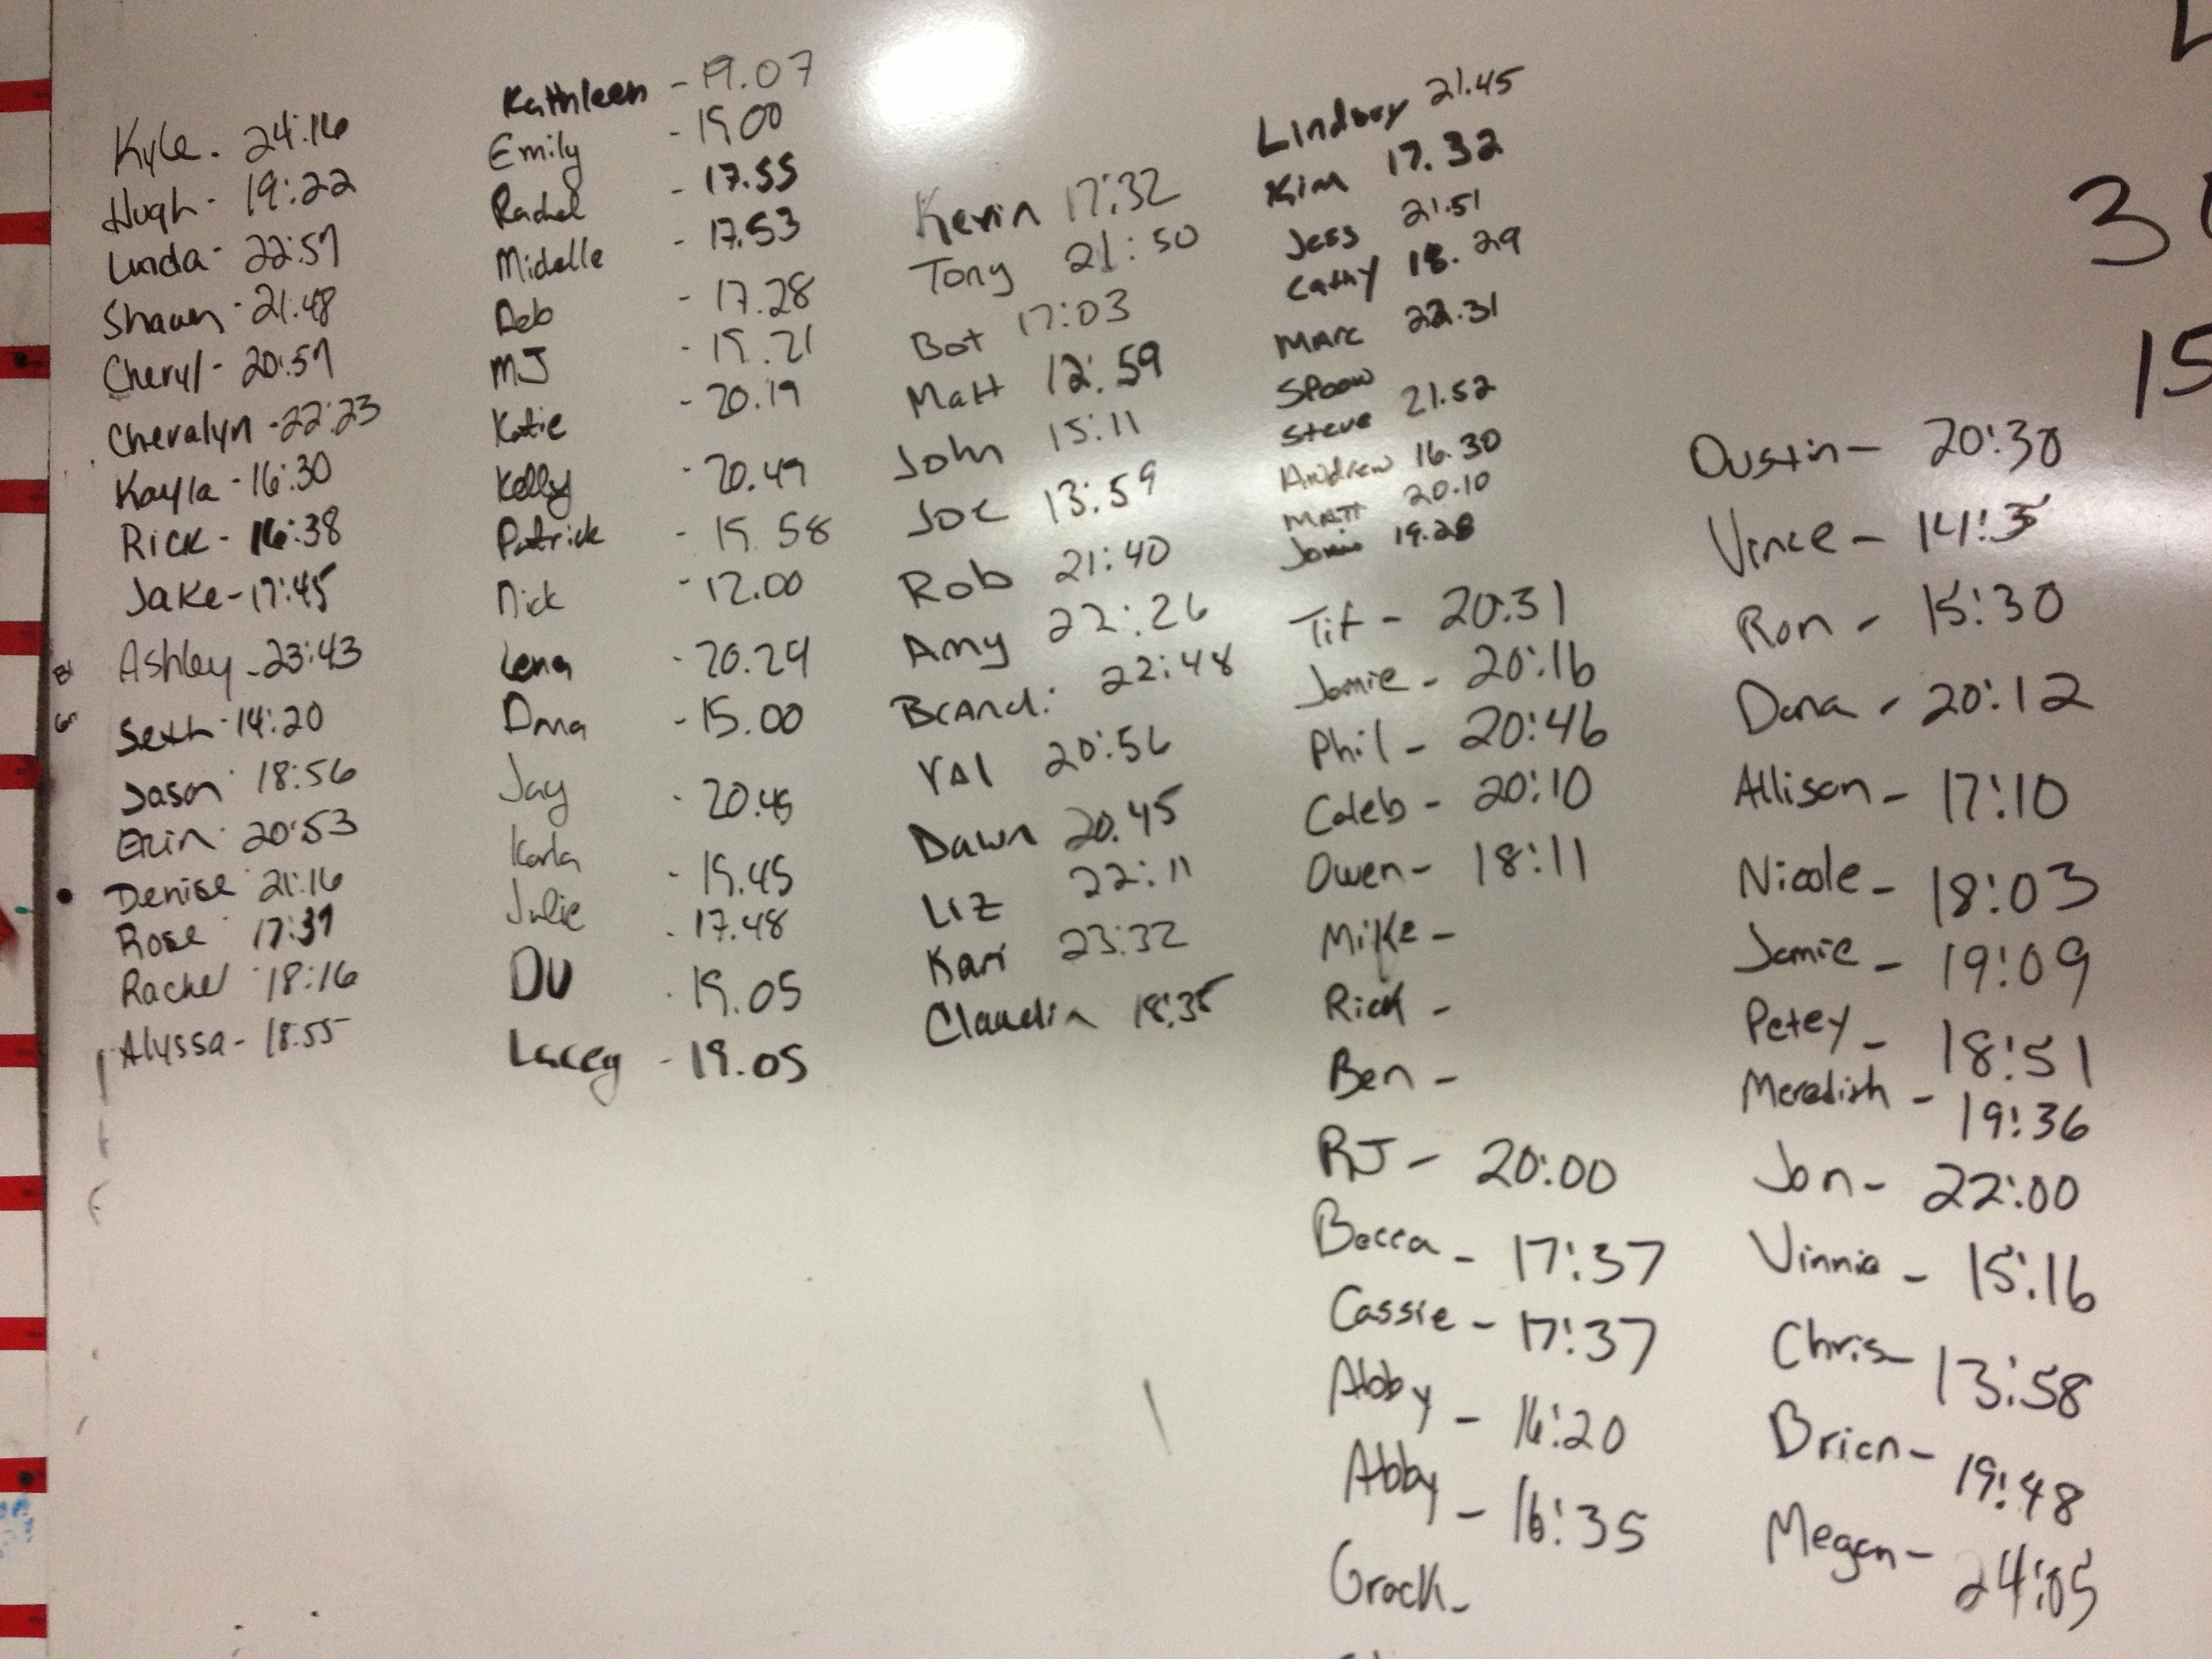 Kyle. 24:16
Hugh - 19:22
Linda - 22:57
Shawn - 21:48
Cheryl - 20:57
Cheralyn - 22:23
Kayla - 16:30
Rick - 16:38
Jake - 17:45
Ashley - 23:43
Seth - 14:20
Jason 18:56
Erin 20:53
Denise 21:16
Rose 17:37
Rachel 18:16
Alyssa - 18:55
Kathleen - 19.07
Emily - 19.00
Rachel - 17.55
Michelle - 17.53
Deb - 17.28
MJ - 19.21
Katie - 20.19
Kelly - 20.49
Patrick - 19.58
Nick - 12.00
Lena - 20.29
Dana - 15.00
Jay - 20.45
Karla - 19.45
Julie - 17.48
DU - 19.05
Lacey - 19.05
Kevin 17:32
Tony 21:50
Bot 17:03
Matt 12:59
John 15:11
Joe 13:59
Rob 21:40
Amy 22:26
Brandi 22:48
Val 20:56
Dawn 20.45
Liz 22:11
Kari 23:32
Claudia 18:35
Lindsay 21.45
Kim 17.32
Jess 21.51
Cathy 18.29
Marc 22.31
Spoon
Steve 21.52
Andrew 16.30
Matt 20.10
19.28
Tif - 20:31
Jamie - 20:16
Phil - 20:46
Caleb - 20:10
Owen - 18:11
Mike -
Rick -
Ben -
RJ - 20:00
Becca - 17:37
Cassie - 17:37
Abby - 16:20
Abby - 16:35
Grack -
Dustin - 20:30
Vince - 14:3
Ron - 15:30
Dana - 20:12
Allison - 17:10
Nicole - 18:03
Jamie - 19:09
Petey - 18:51
Meredith - 19:36
Jon - 22:00
Vinnie - 15:16
Chris - 13:58
Brian - 19:48
Megan - 24:05
15